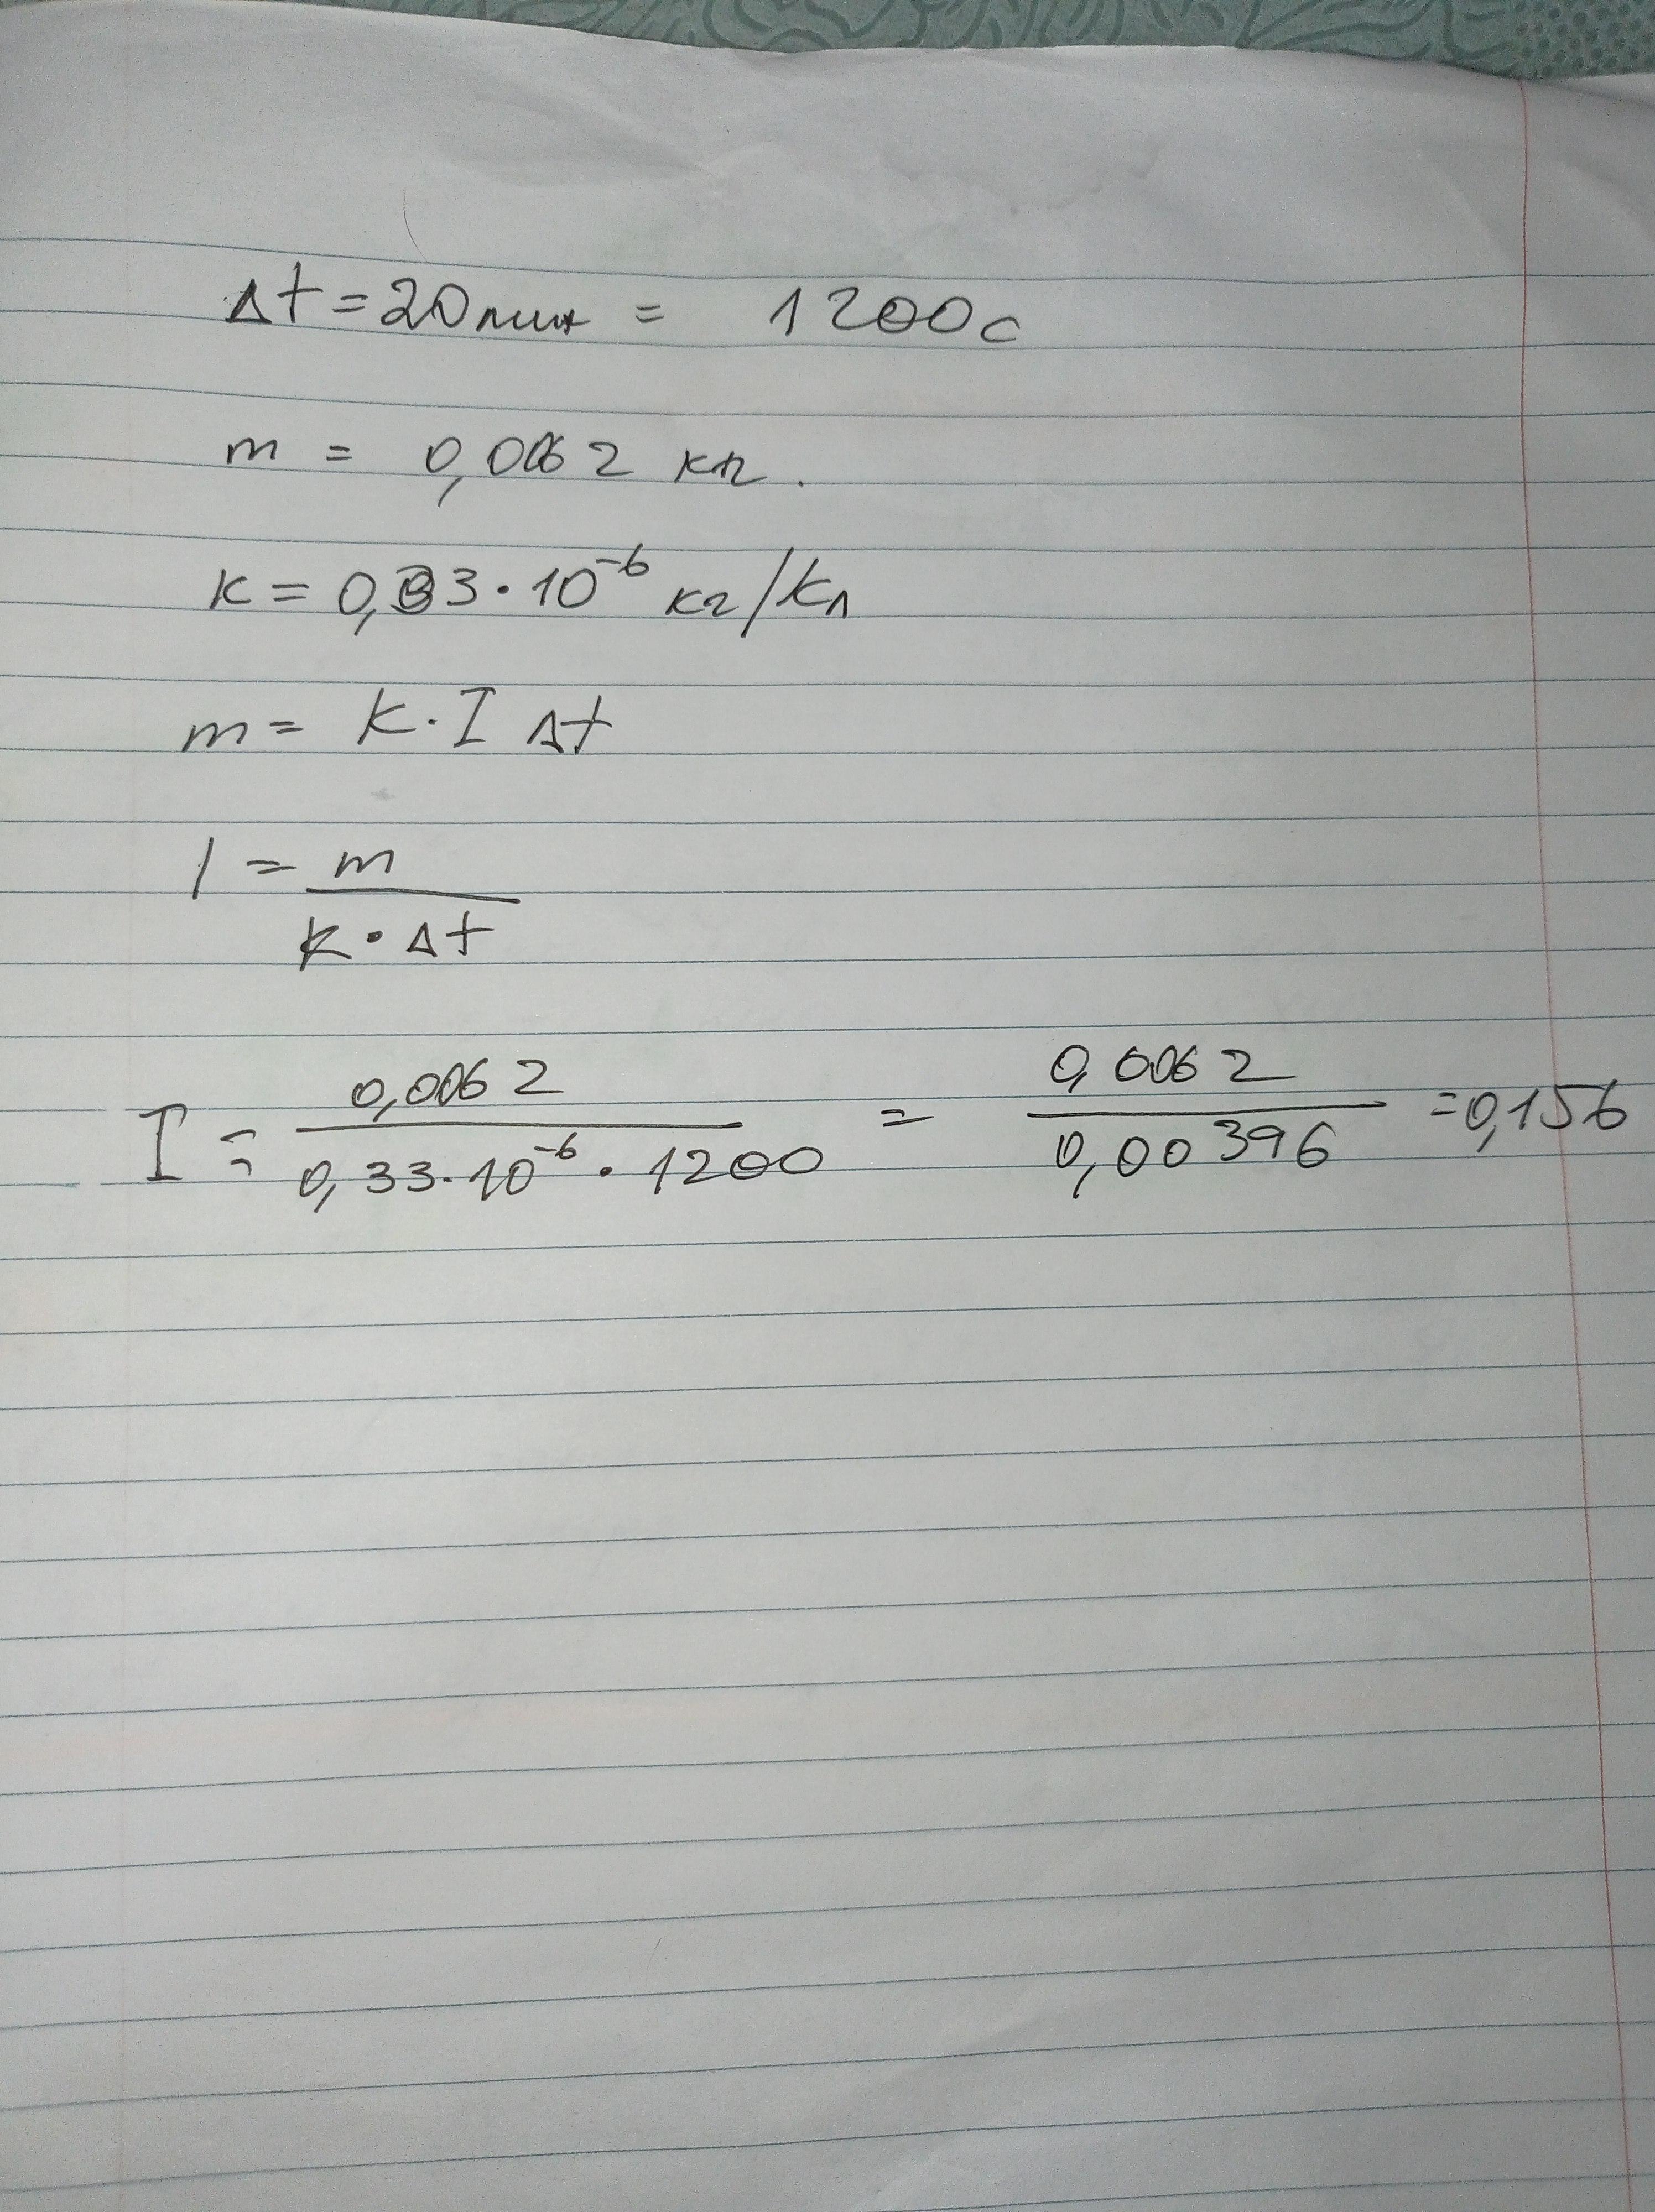 Δt = 20 мин = 1200 с
m = 0,0062 кг.
к = 0,33 · 10⁻⁶ кг/Кл
m = K · I Δt
I = m / K · Δt
I = 0,0062 / 0,33 · 10⁻⁶ · 1200 = 0,0062 / 0,00396 = 0,156